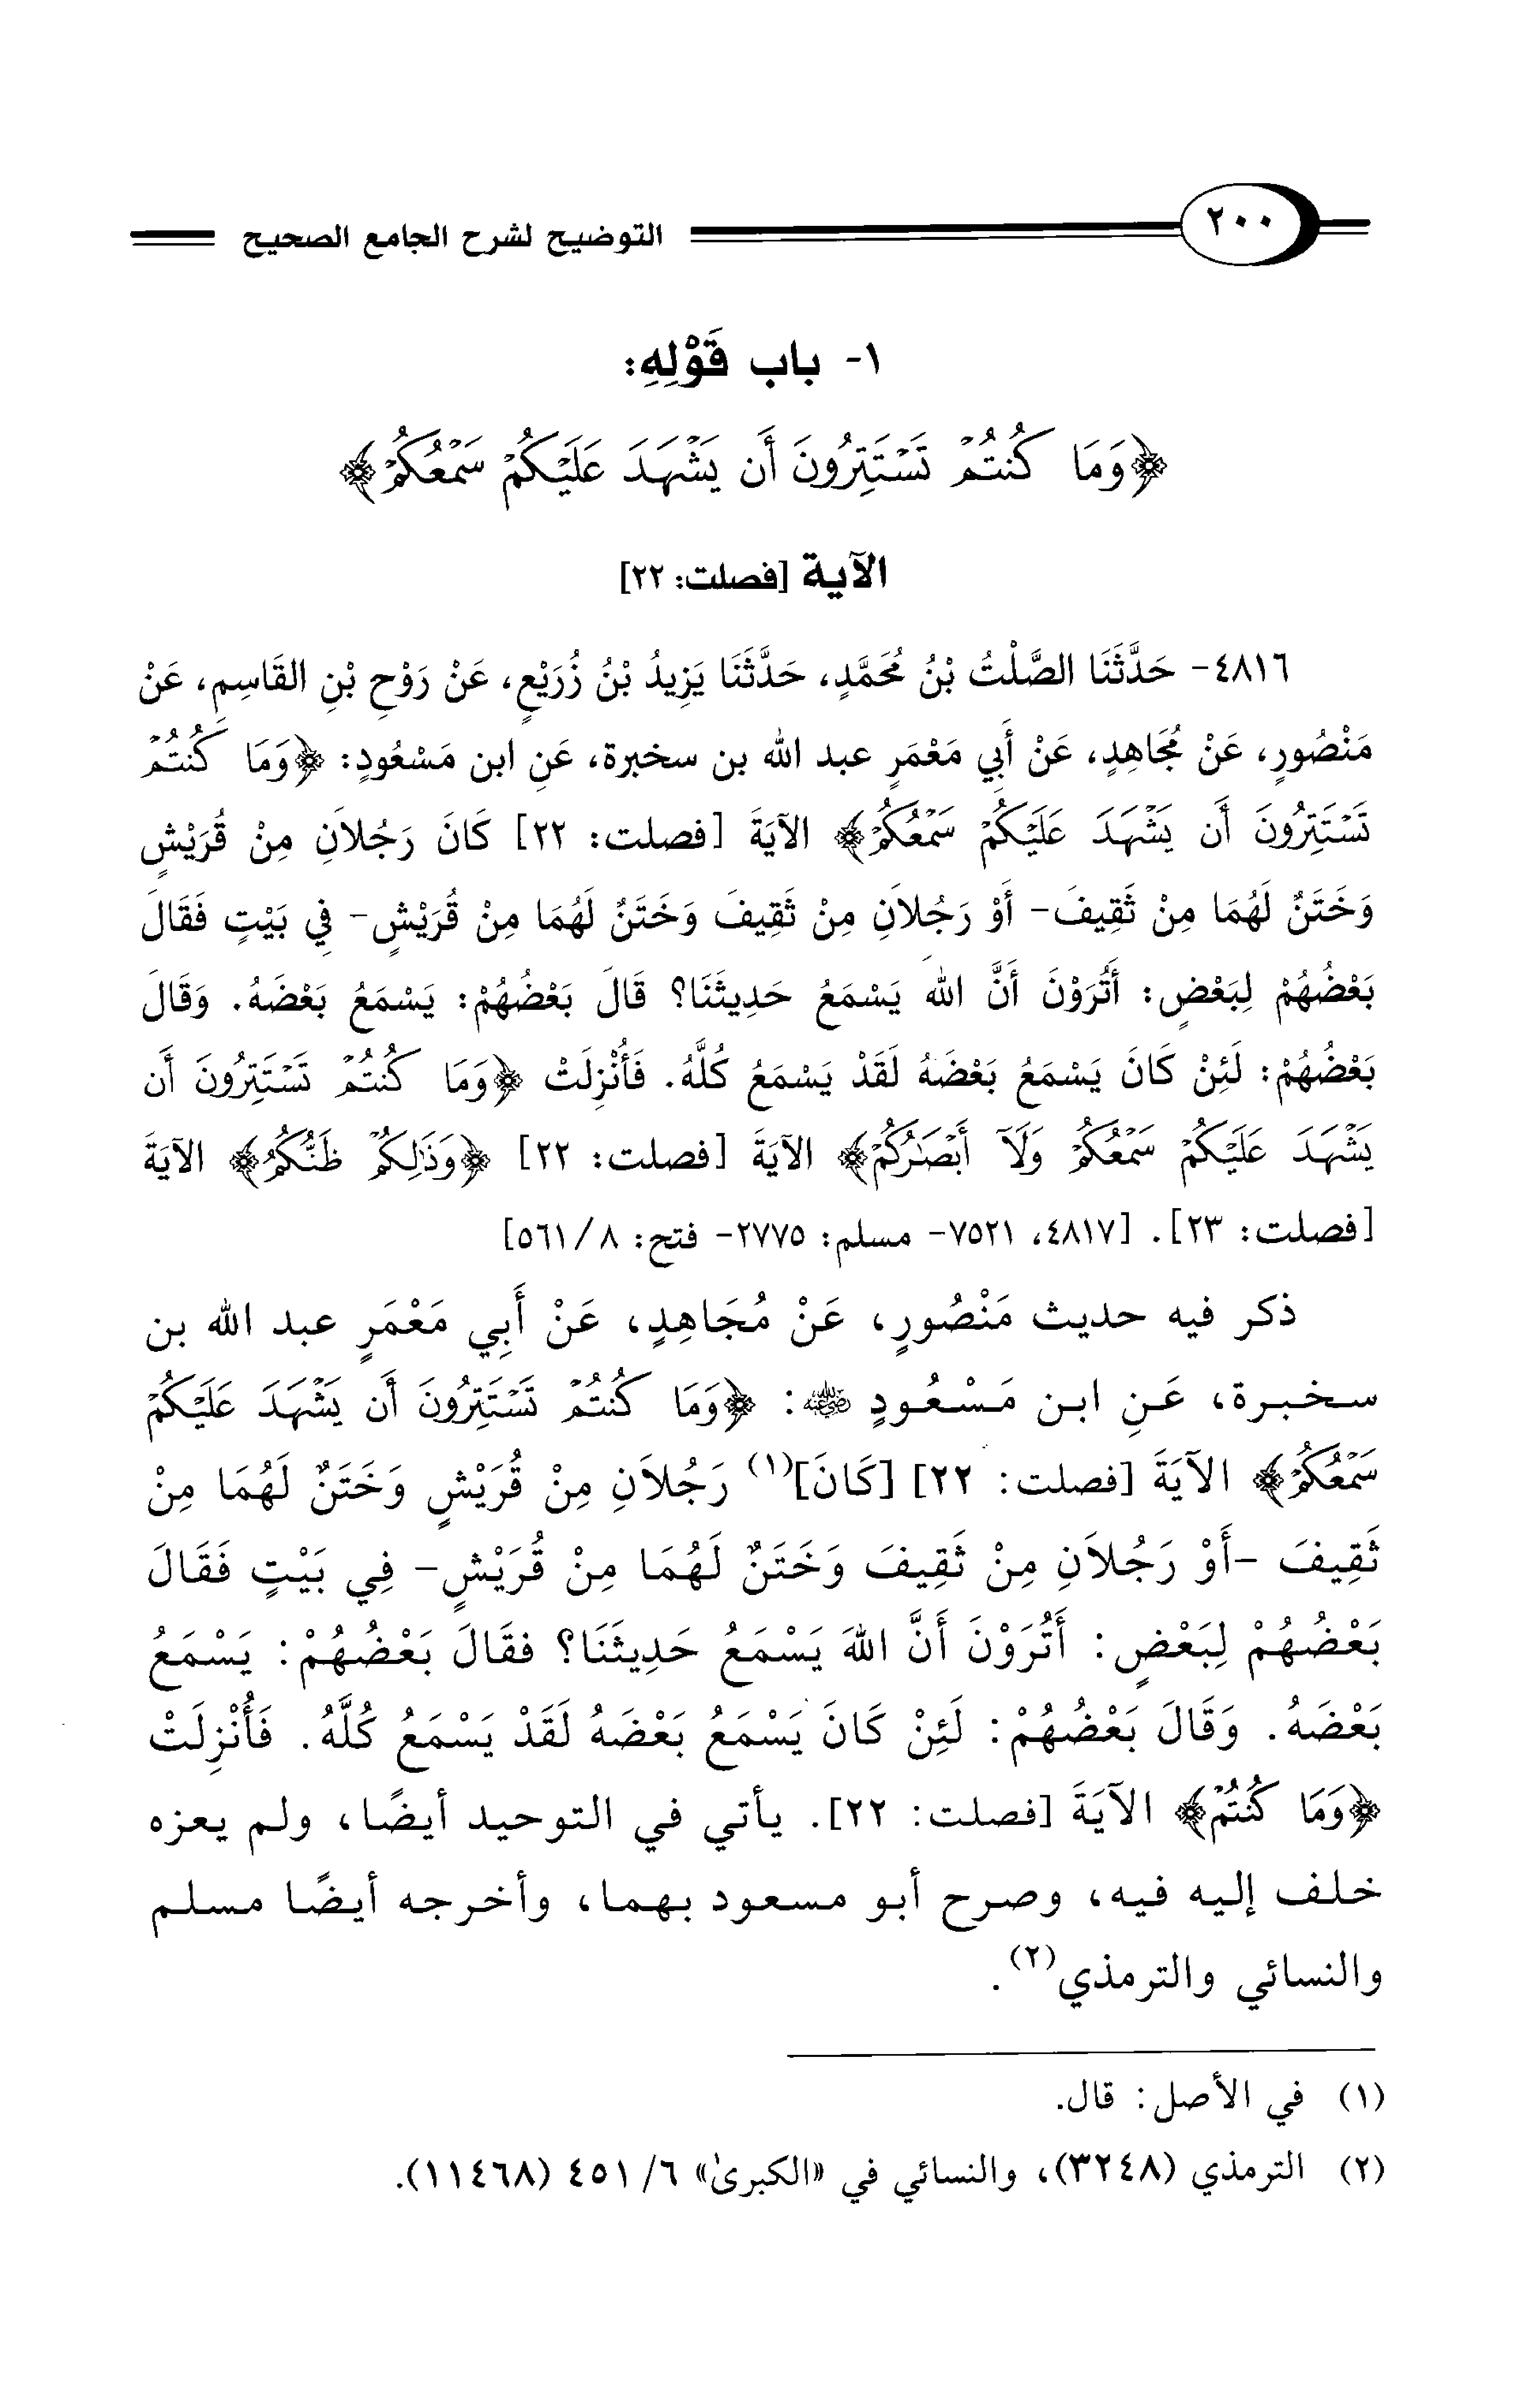 ٢٠٠
التوضيح لشرح الجامع الصحيح
١- باب قَوْلِهِ:
﴿وَمَا كُنتُمْ تَسْتَتِرُونَ أَن يَشْهَدَ عَلَيْكُمْ سَمْعُكُمْ﴾
الآية [فصلت: ٢٢]
٤٨١٦- حَدَّثَنَا الصَّلْتُ بْنُ مُحَمَّدٍ، حَدَّثَنَا يَزِيدُ بْنُ زُرَيْعٍ، عَنْ رَوْحِ بْنِ القَاسِمِ، عَنْ
مَنْصُورٍ، عَنْ مُجَاهِدٍ، عَنْ أَبِي مَعْمَرٍ عبد الله بن سخبرة، عَنِ ابن مَسْعُودٍ: ﴿وَمَا كُنتُمْ
تَسْتَتِرُونَ أَن يَشْهَدَ عَلَيْكُمْ سَمْعُكُمْ﴾ الآيَةَ [فصلت: ٢٢] كَانَ رَجُلاَنِ مِنْ قُرَيْشٍ
وَخَتَنٌ لَهُمَا مِنْ ثَقِيفَ- أَوْ رَجُلاَنِ مِنْ ثَقِيفَ وَخَتَنٌ لَهُمَا مِنْ قُرَيْشٍ- فِي بَيْتٍ فَقَالَ
بَعْضُهُمْ لِبَعْضٍ: أَتُرَوْنَ أَنَّ اللهَ يَسْمَعُ حَدِيثَنَا؟ قَالَ بَعْضُهُمْ: يَسْمَعُ بَعْضَهُ. وَقَالَ
بَعْضُهُمْ: لَئِنْ كَانَ يَسْمَعُ بَعْضَهُ لَقَدْ يَسْمَعُ كُلَّهُ. فَأُنْزِلَتْ ﴿وَمَا كُنتُمْ تَسْتَتِرُونَ أَن
يَشْهَدَ عَلَيْكُمْ سَمْعُكُمْ وَلَآ أَبْصَٰرُكُمْ﴾ الآيَةَ [فصلت: ٢٢] ﴿وَذَٰلِكُمْ ظَنُّكُمُ﴾ الآيَةَ
[فصلت: ٢٣]. [٤٨١٧، ٧٥٢١- مسلم: ٢٧٧٥- فتح: ٨/ ٥٦١]
ذكر فيه حديث مَنْصُورٍ، عَنْ مُجَاهِدٍ، عَنْ أَبِي مَعْمَرٍ عبد الله بن
سخبرة، عَنِ ابن مَسْعُودٍ ﵁: ﴿وَمَا كُنتُمْ تَسْتَتِرُونَ أَن يَشْهَدَ عَلَيْكُمْ
سَمْعُكُمْ﴾ الآيَةَ [فصلت: ٢٢] [كَانَ](١) رَجُلاَنِ مِنْ قُرَيْشٍ وَخَتَنٌ لَهُمَا مِنْ
ثَقِيفَ -أَوْ رَجُلاَنِ مِنْ ثَقِيفَ وَخَتَنٌ لَهُمَا مِنْ قُرَيْشٍ- فِي بَيْتٍ فَقَالَ
بَعْضُهُمْ لِبَعْضٍ: أَتُرَوْنَ أَنَّ اللهَ يَسْمَعُ حَدِيثَنَا؟ فقَالَ بَعْضُهُمْ: يَسْمَعُ
بَعْضَهُ. وَقَالَ بَعْضُهُمْ: لَئِنْ كَانَ يَسْمَعُ بَعْضَهُ لَقَدْ يَسْمَعُ كُلَّهُ. فَأُنْزِلَتْ
﴿وَمَا كُنتُمْ﴾ الآيَةَ [فصلت: ٢٢]. يأتي في التوحيد أيضًا، ولم يعزه
خلف إليه فيه، وصرح أبو مسعود بهما، وأخرجه أيضًا مسلم
والنسائي والترمذي(٢).
(١) في الأصل: قال.
(٢) الترمذي (٣٢٤٨)، والنسائي في «الكبرىٰ» ٦/ ٤٥١ (١١٤٦٨).